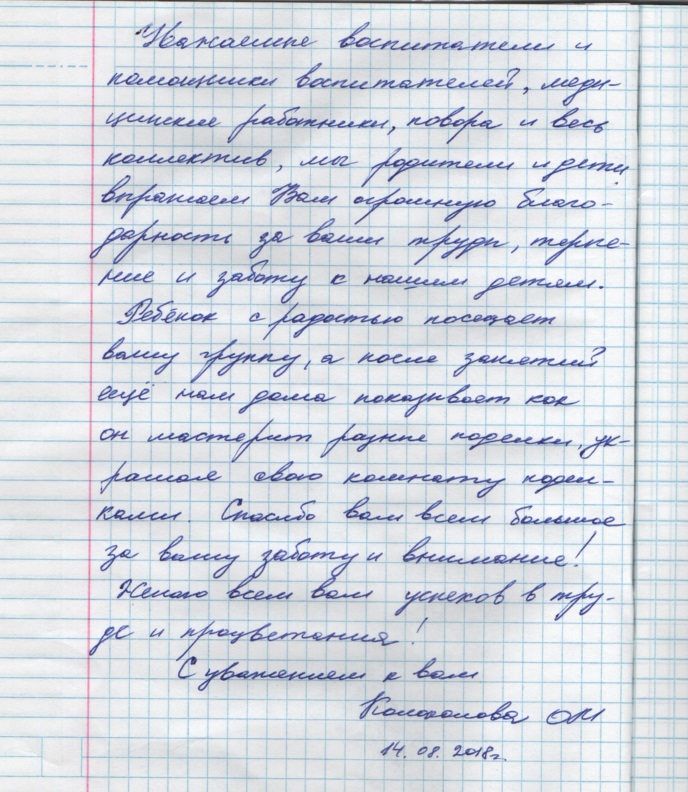 Уважаемые воспитатели и
помощники воспитателей, меди-
цинские работники, повора и весь
коллектив, мы родители и дети
выражаем Вам огромную благо-
дарность за ваши труды, терпе-
ние и заботу к нашим детям.
Ребёнок с радостью посещает
вашу группу, а после занятий
ещё нам дома показывает как
он мастерит разные поделки, ук-
рашая свою комнату подел-
ками. Спасибо вам всем большое
за вашу заботу и внимание!
Желаю всем вам успехов в тру-
де и процветания!
С уважением к вам
Колоколова ОМ
14.08.2018г.